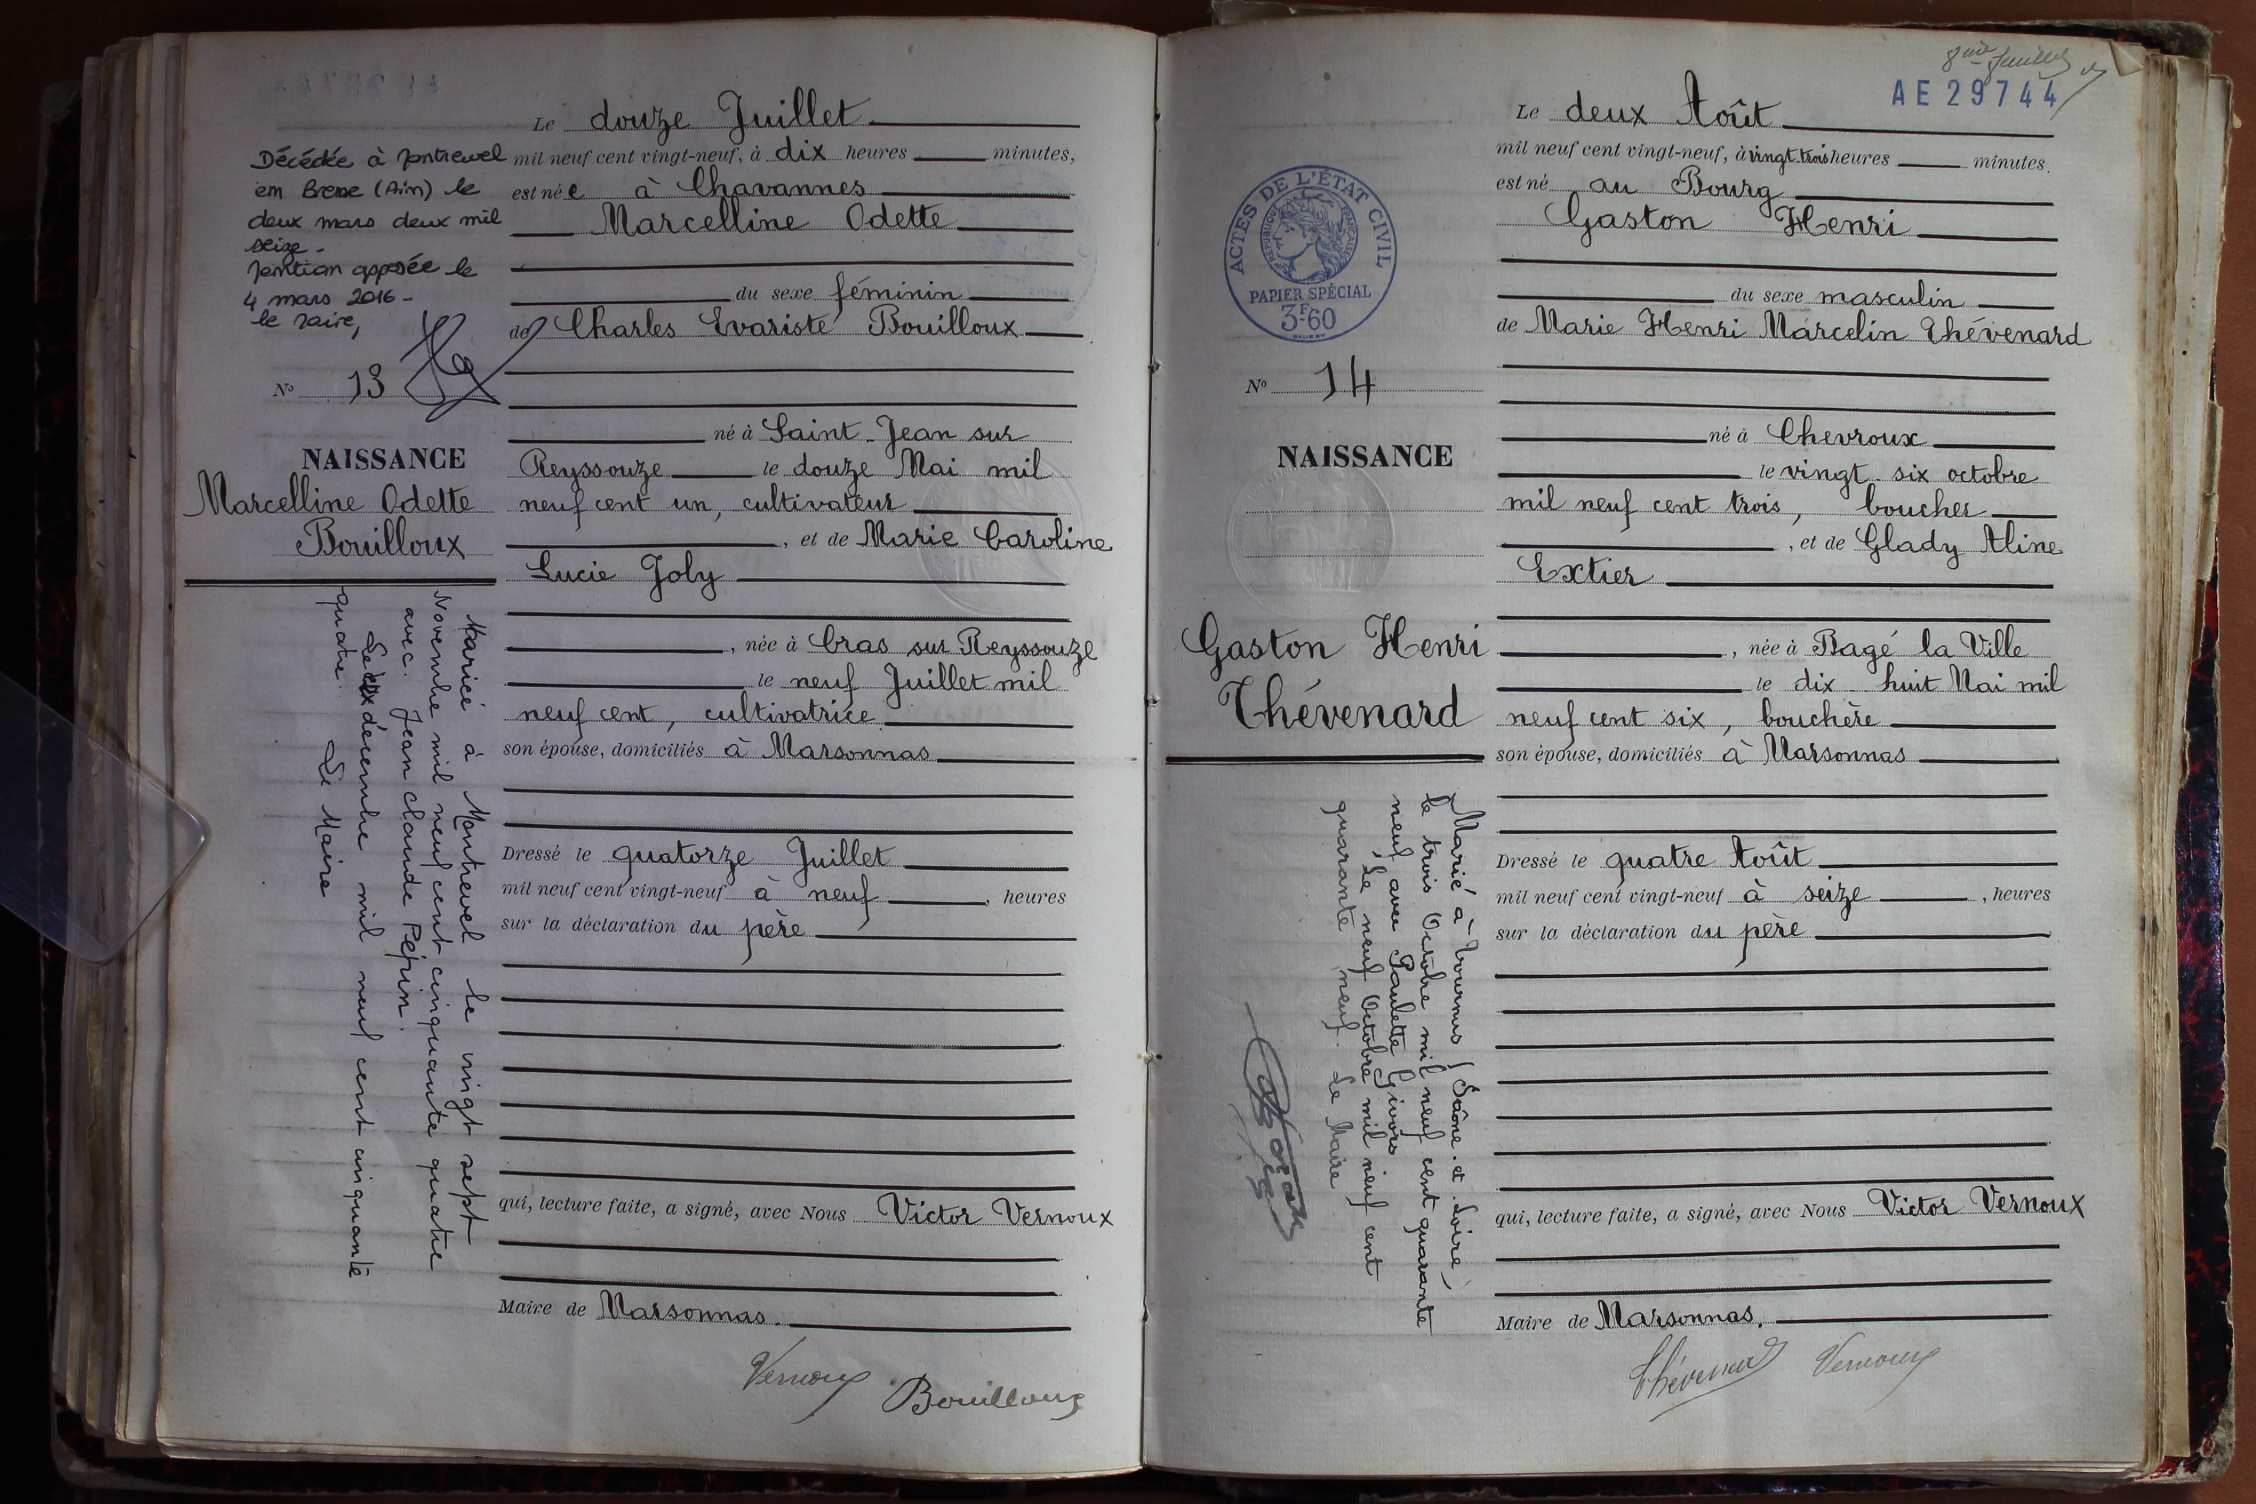 Le douze Juillet
mil neuf cent vingt-neuf, à dix heures minutes,
est née à Chavannes
Marcelline Odette
du sexe féminin
de Charles Evariste Bouilloux
né à Saint-Jean sur
Reyssouze le douze Mai mil
neuf cent un, cultivateur
, et de Marie Caroline
Lucie Joly
, née à Cras sur Reyssouze
le neuf Juillet mil
neuf cent, cultivatrice
son épouse, domiciliés à Marsonnas
Dressé le quatorze Juillet
mil neuf cent vingt-neuf à neuf , heures
sur la déclaration du père
qui, lecture faite, a signé, avec Nous Victor Vernoux
Maire de Marsonnas.
Vernoux Bouilloux
Décédée à Montrevel
en Bresse (Ain) le
deux mars deux mil
seize -
Mention apposée le
4 mars 2016 -
le Maire,
No 13
NAISSANCE
Marcelline Odette
Bouilloux
Mariée à Montrevel le vingt sept
Novembre mil neuf cent cinquante quatre
avec Jean Claude Pépin.
Le décembre mil neuf cent cinquante
quatre. Le Maire
8me
AE 29744
Le deux Août
mil neuf cent vingt-neuf, à vingt-trois heures minutes.
est né au Bourg
Gaston Henri
du sexe masculin
de Marie Henri Marcelin Thévenard
né à Chevroux
le vingt-six octobre
mil neuf cent trois, boucher
, et de Glady Aline
Extier
, née à Bagé la Ville
le dix-huit Mai mil
neuf cent six, bouchère
son épouse, domiciliés à Marsonnas
Dressé le quatre Août
mil neuf cent vingt-neuf à seize , heures
sur la déclaration du père
qui, lecture faite, a signé, avec Nous Victor Vernoux
Maire de Marsonnas.
Thévenard Vernoux
ACTES DE L'ÉTAT CIVIL
RÉPUBLIQUE FRANÇAISE
PAPIER SPÉCIAL
3F.60
No 14
NAISSANCE
Gaston Henri
Thévenard
Marié à Tournus (Saône-et-Loire)
le trois Octobre mil neuf cent quarante
neuf avec Paulette Givors
Le neuf Octobre mil neuf cent
quarante neuf. Le Maire